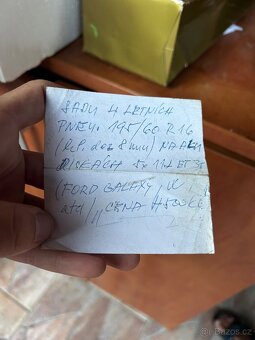 SADU 4 LETNÍCH
PNEU. 195/60 R16
(hl. dez 8 mm) NA ALU
DISKÁCH 5x112 ET 35
(FORD GALAXY, VW
atd), CENA 4500 Kč
Bazos.cz